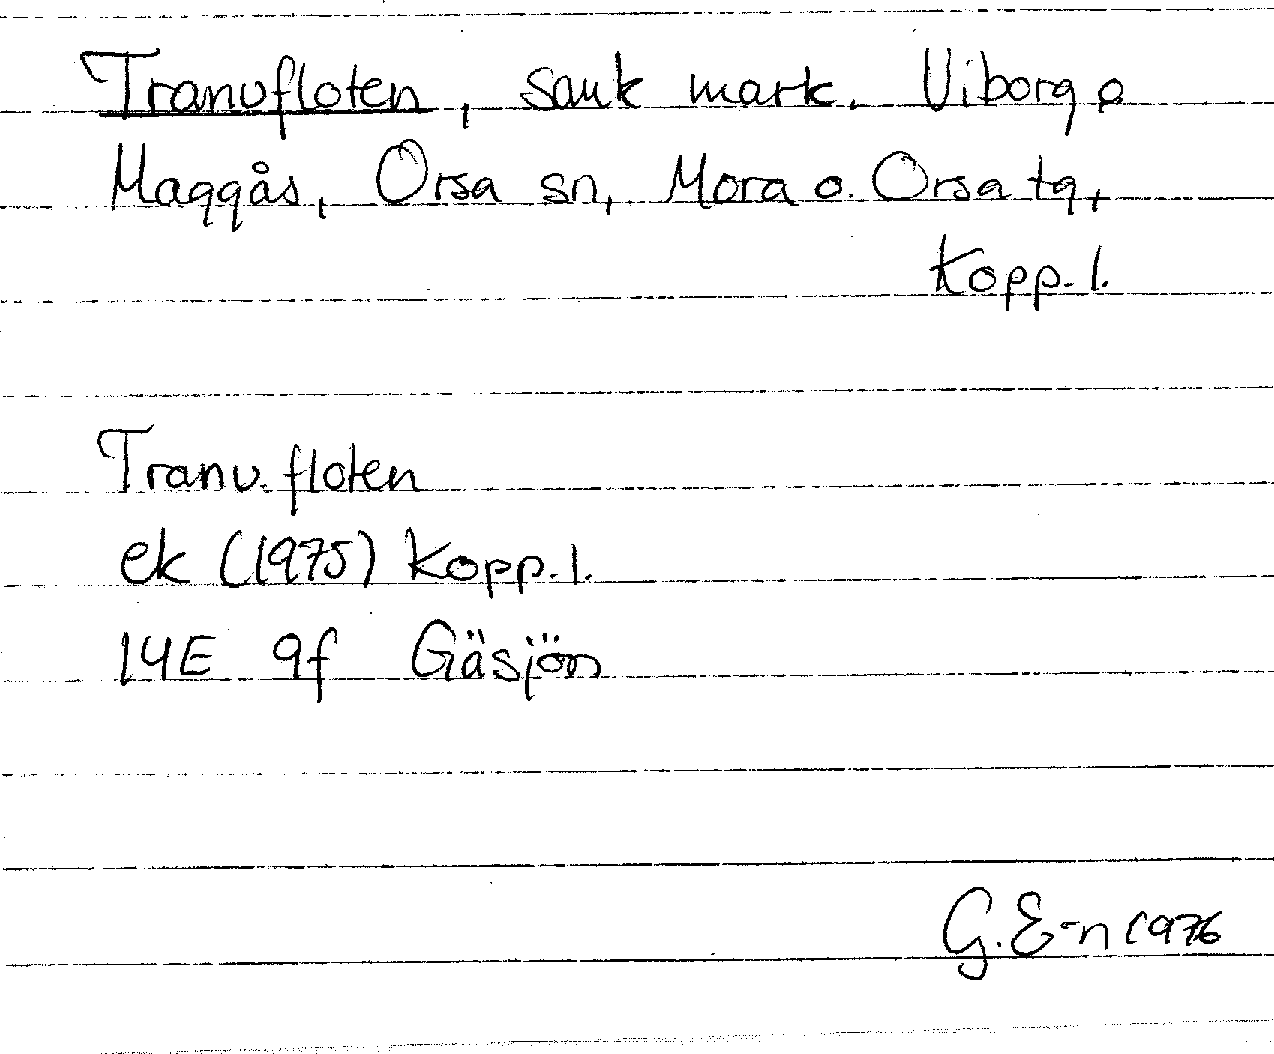 Tranufloten, sank mark. Viborg o
Maggås, Orsa sn, Mora o. Orsa tg,
Kopp. l.
Tranu. floten
ek (1975) Kopp. l.
14E 9f Gäsjön
G. E-n 1976